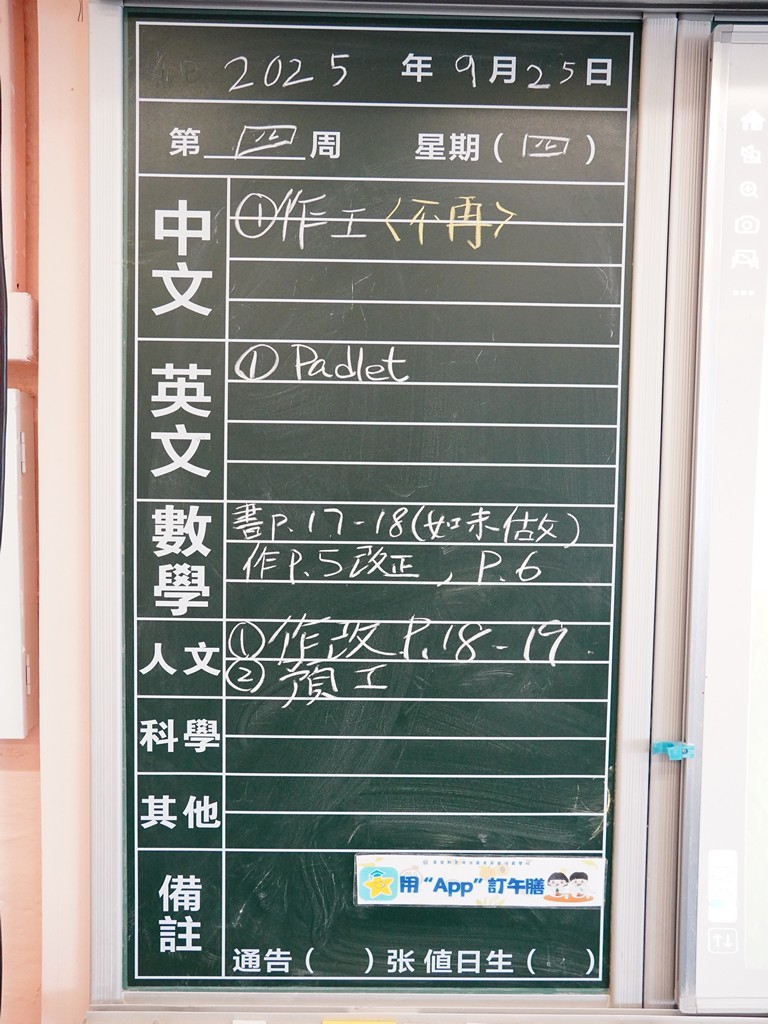 2025 年 9 月 25 日
第 四 周 星期 ( 四 )
中文
①作工〈不再〉
英文
① Padlet
數學
書P.17-18(如未做)
作P.5改正, P.6
人文
①作改 P.18-19.
②預工
科學
其他
備註
用“App”訂午膳
通告 ( ) 张 值日生 ( )